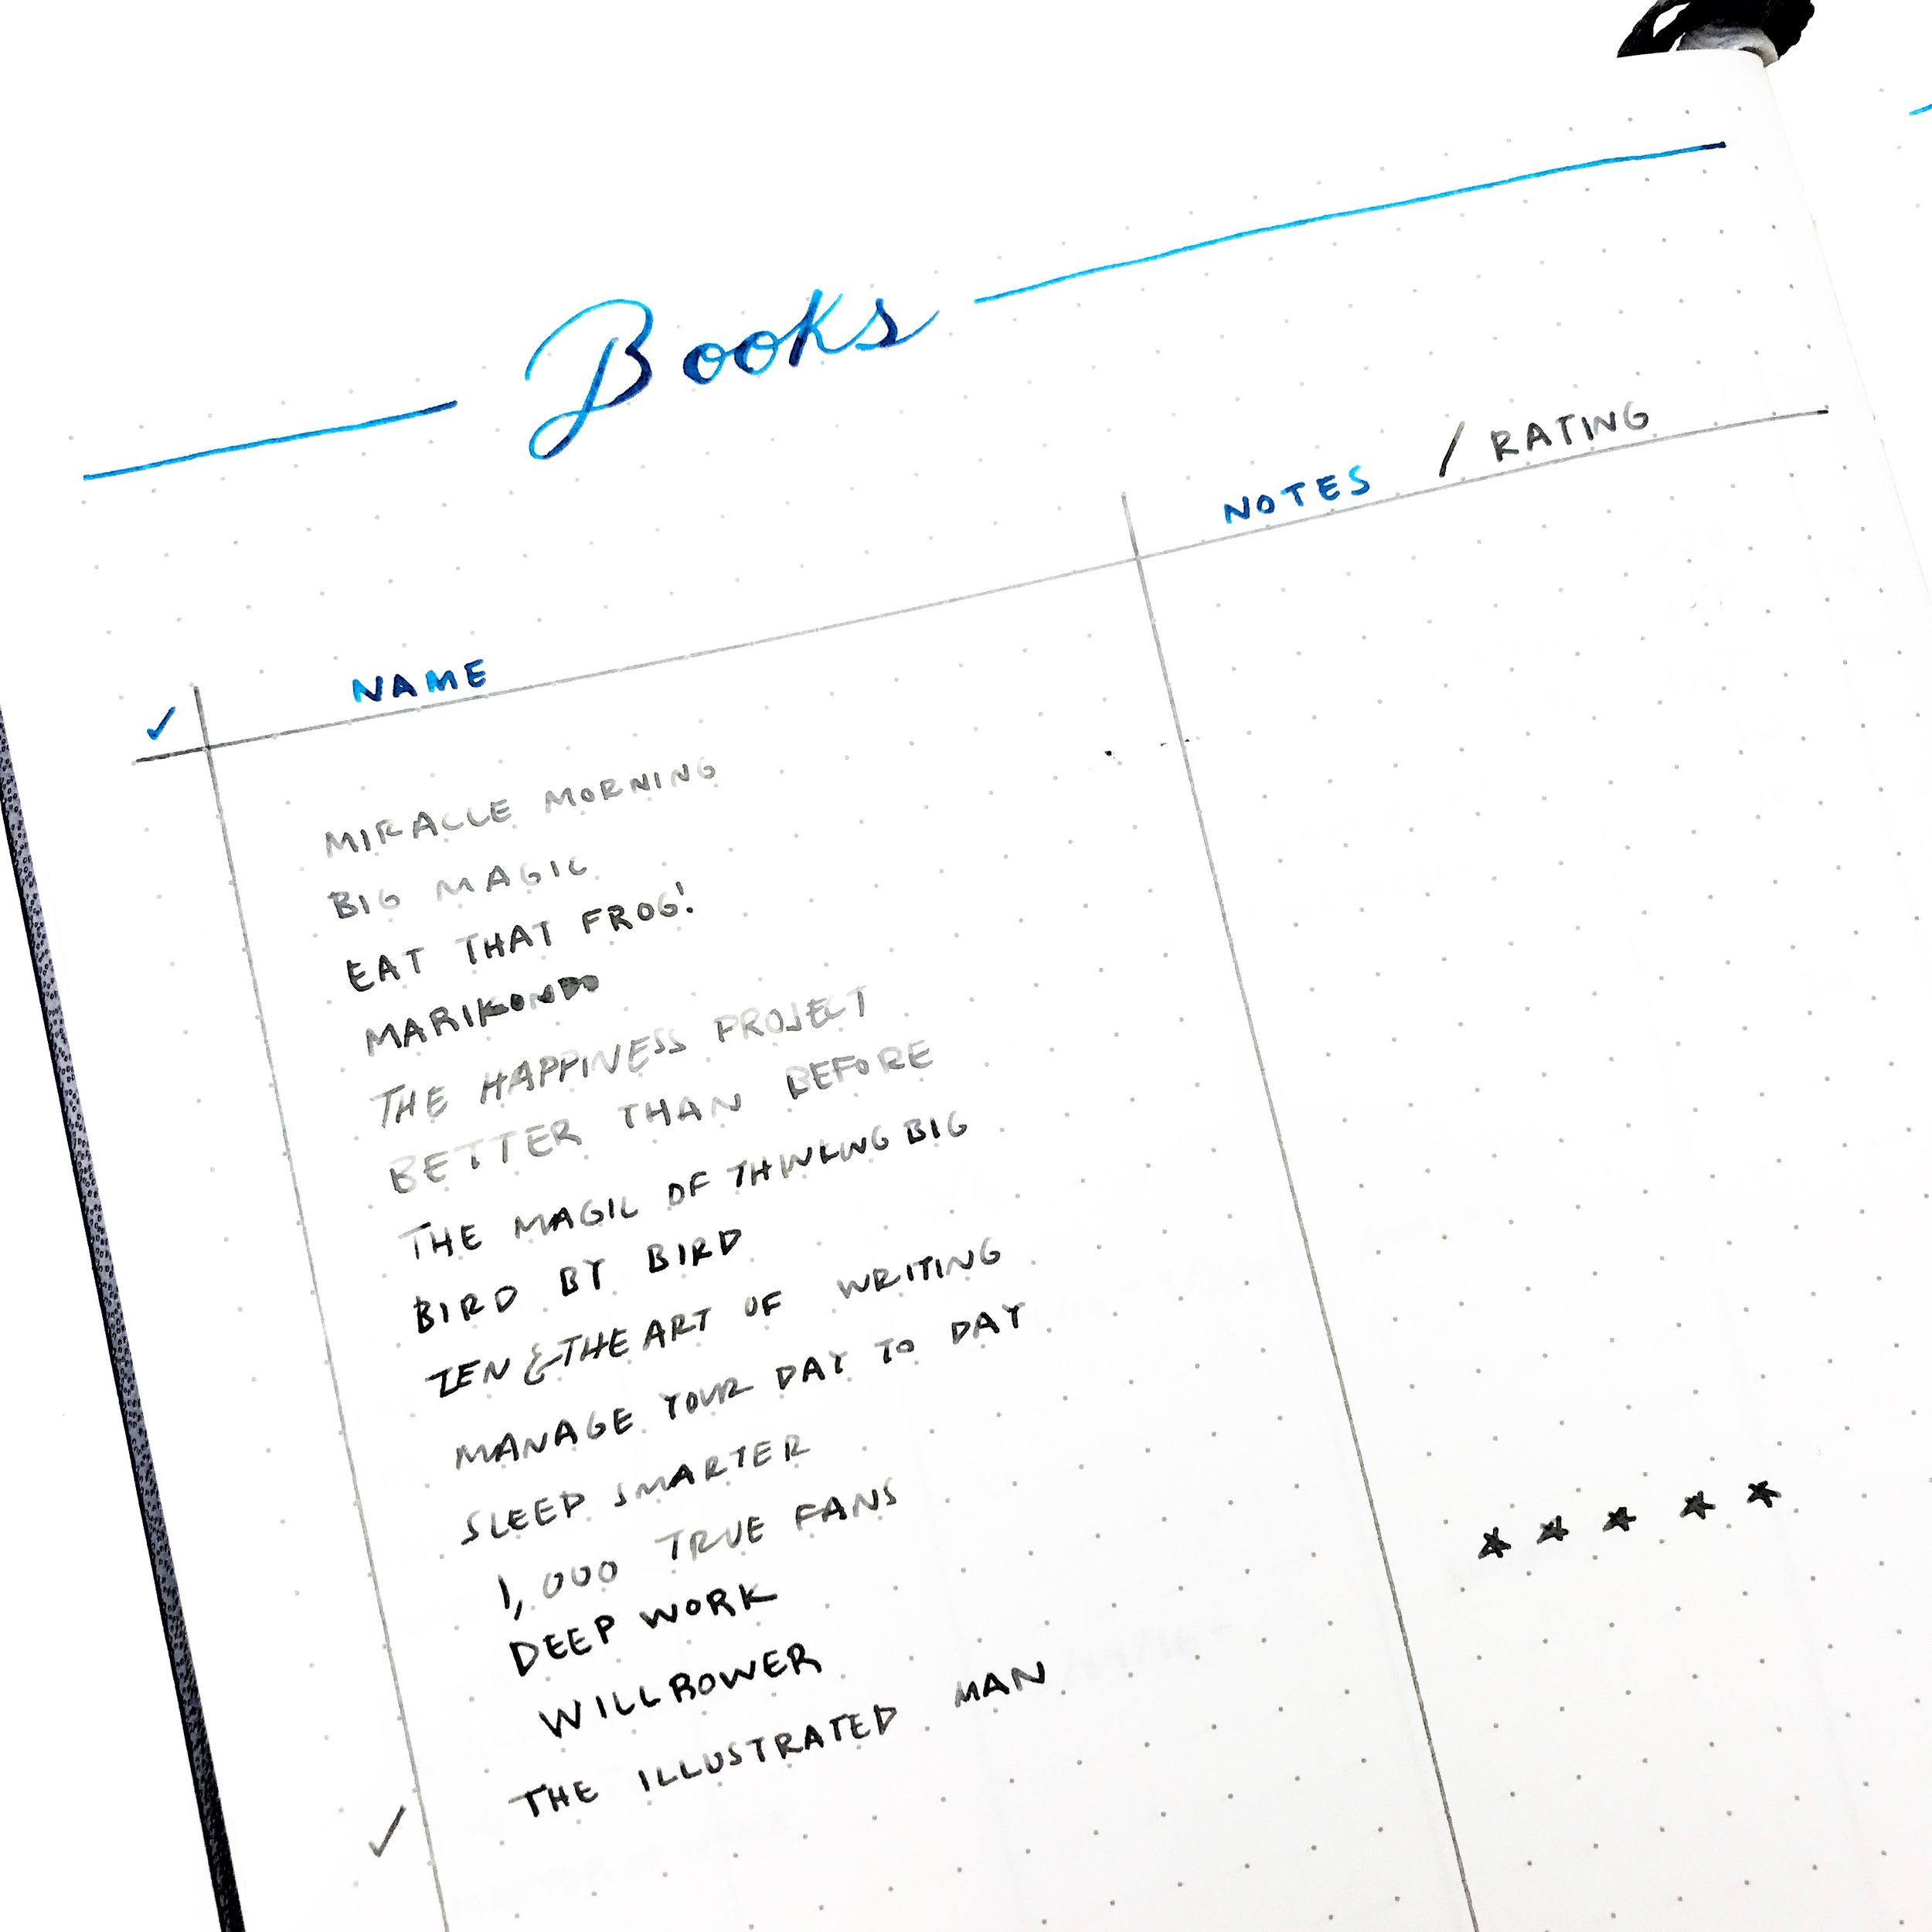 Books
✓ NAME NOTES / RATING
MIRACLE MORNING
BIG MAGIC
EAT THAT FROG!
MARIKONDO
THE HAPPINESS PROJECT
BETTER THAN BEFORE
THE MAGIC OF THINKING BIG
BIRD BY BIRD
ZEN & THE ART OF WRITING
MANAGE YOUR DAY TO DAY
SLEEP SMARTER
1,000 TRUE FANS
DEEP WORK
WILLPOWER
✓ THE ILLUSTRATED MAN ★ ★ ★ ★ ★